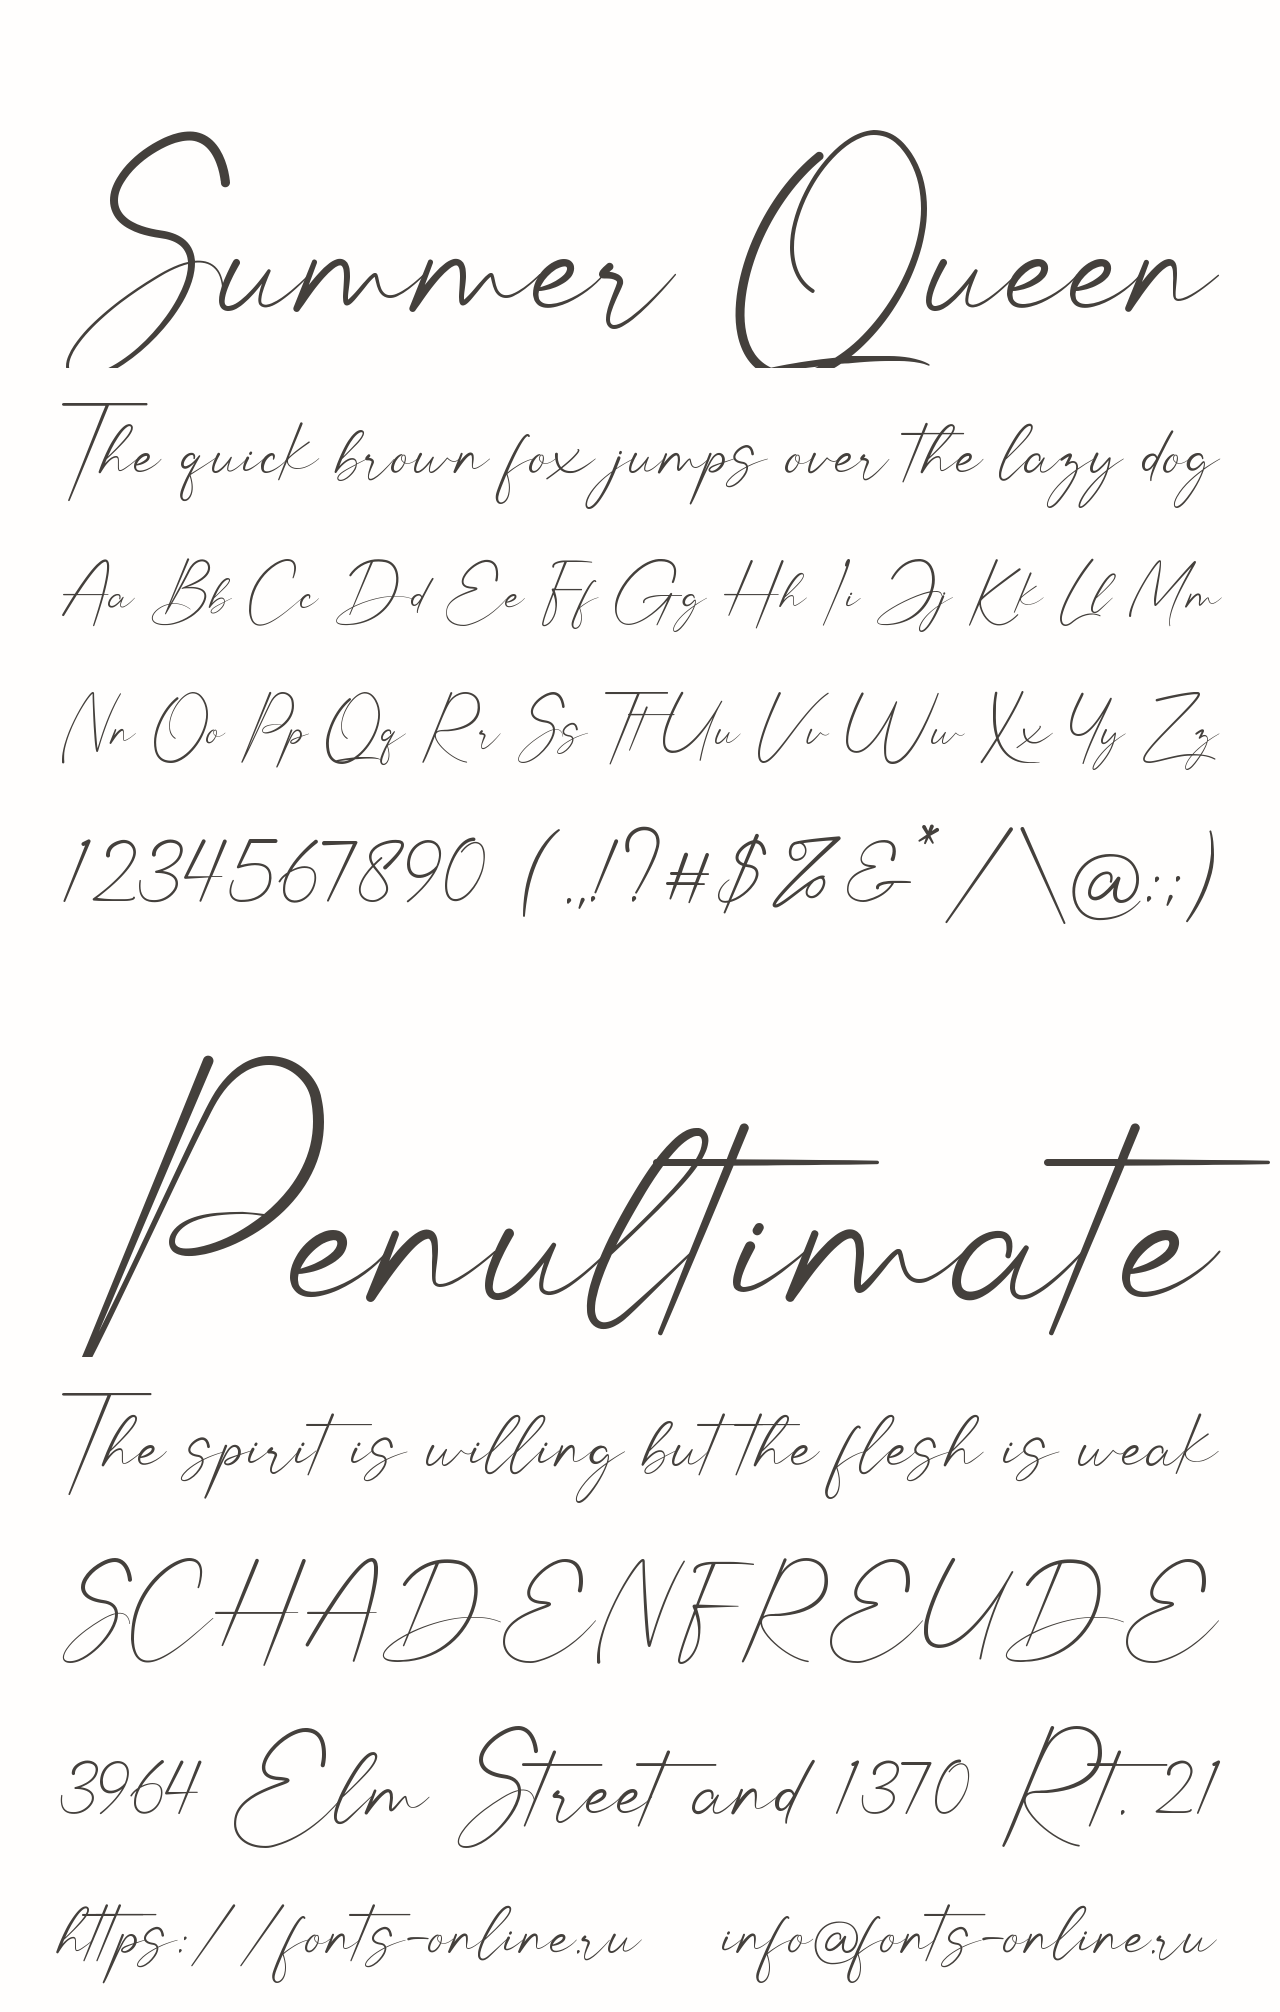 Summer Queen
The quick brown fox jumps over the lazy dog
Aa Bb Cc Dd Ee Ff Gg Hh Ii Jj Kk Ll Mm
Nn Oo Pp Qq Rr Ss Tt Uu Vv Ww Xx Yy Zz
1234567890 (.,!?#$%&*/\@:;)
Penultimate
The spirit is willing but the flesh is weak
SCHADENFREUDE
3964 Elm Street and 1370 Rt. 21
https://fonts-online.ru info@fonts-online.ru